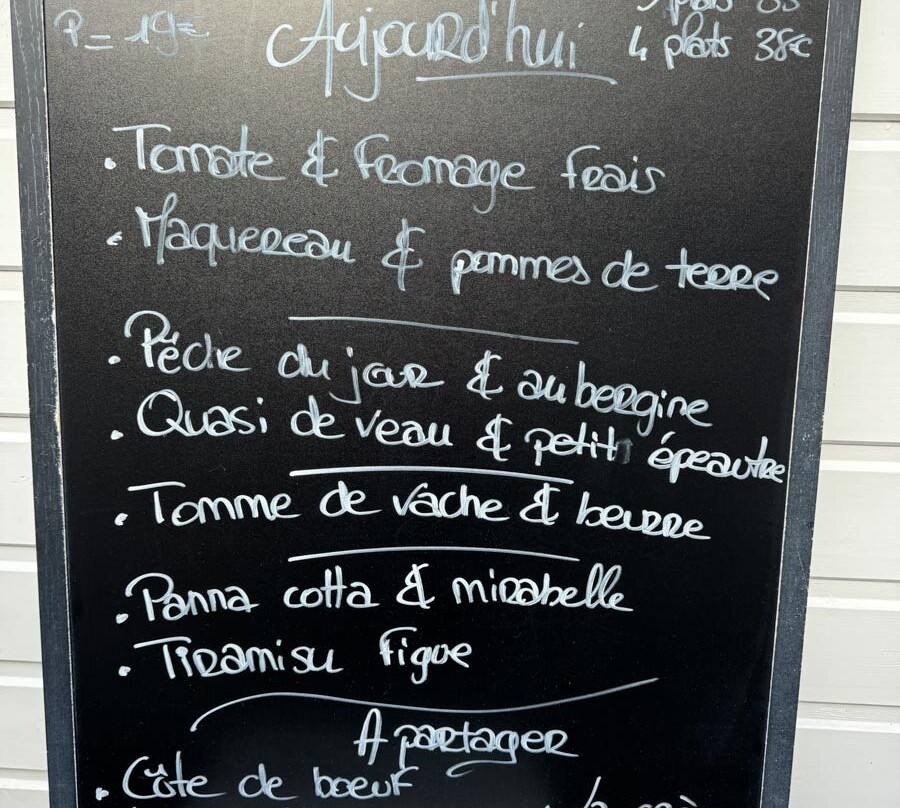 P = 19€
Aujourd'hui
plats
4 plats 38€
• Tomate & fromage frais
• Maquereau & pommes de terre
• Pêche du jour & aubergine
• Quasi de veau & petit épeautre
• Tomme de vache & beurre
• Panna cotta & mirabelle
• Tiramisu figue
A partager
• Côte de boeuf